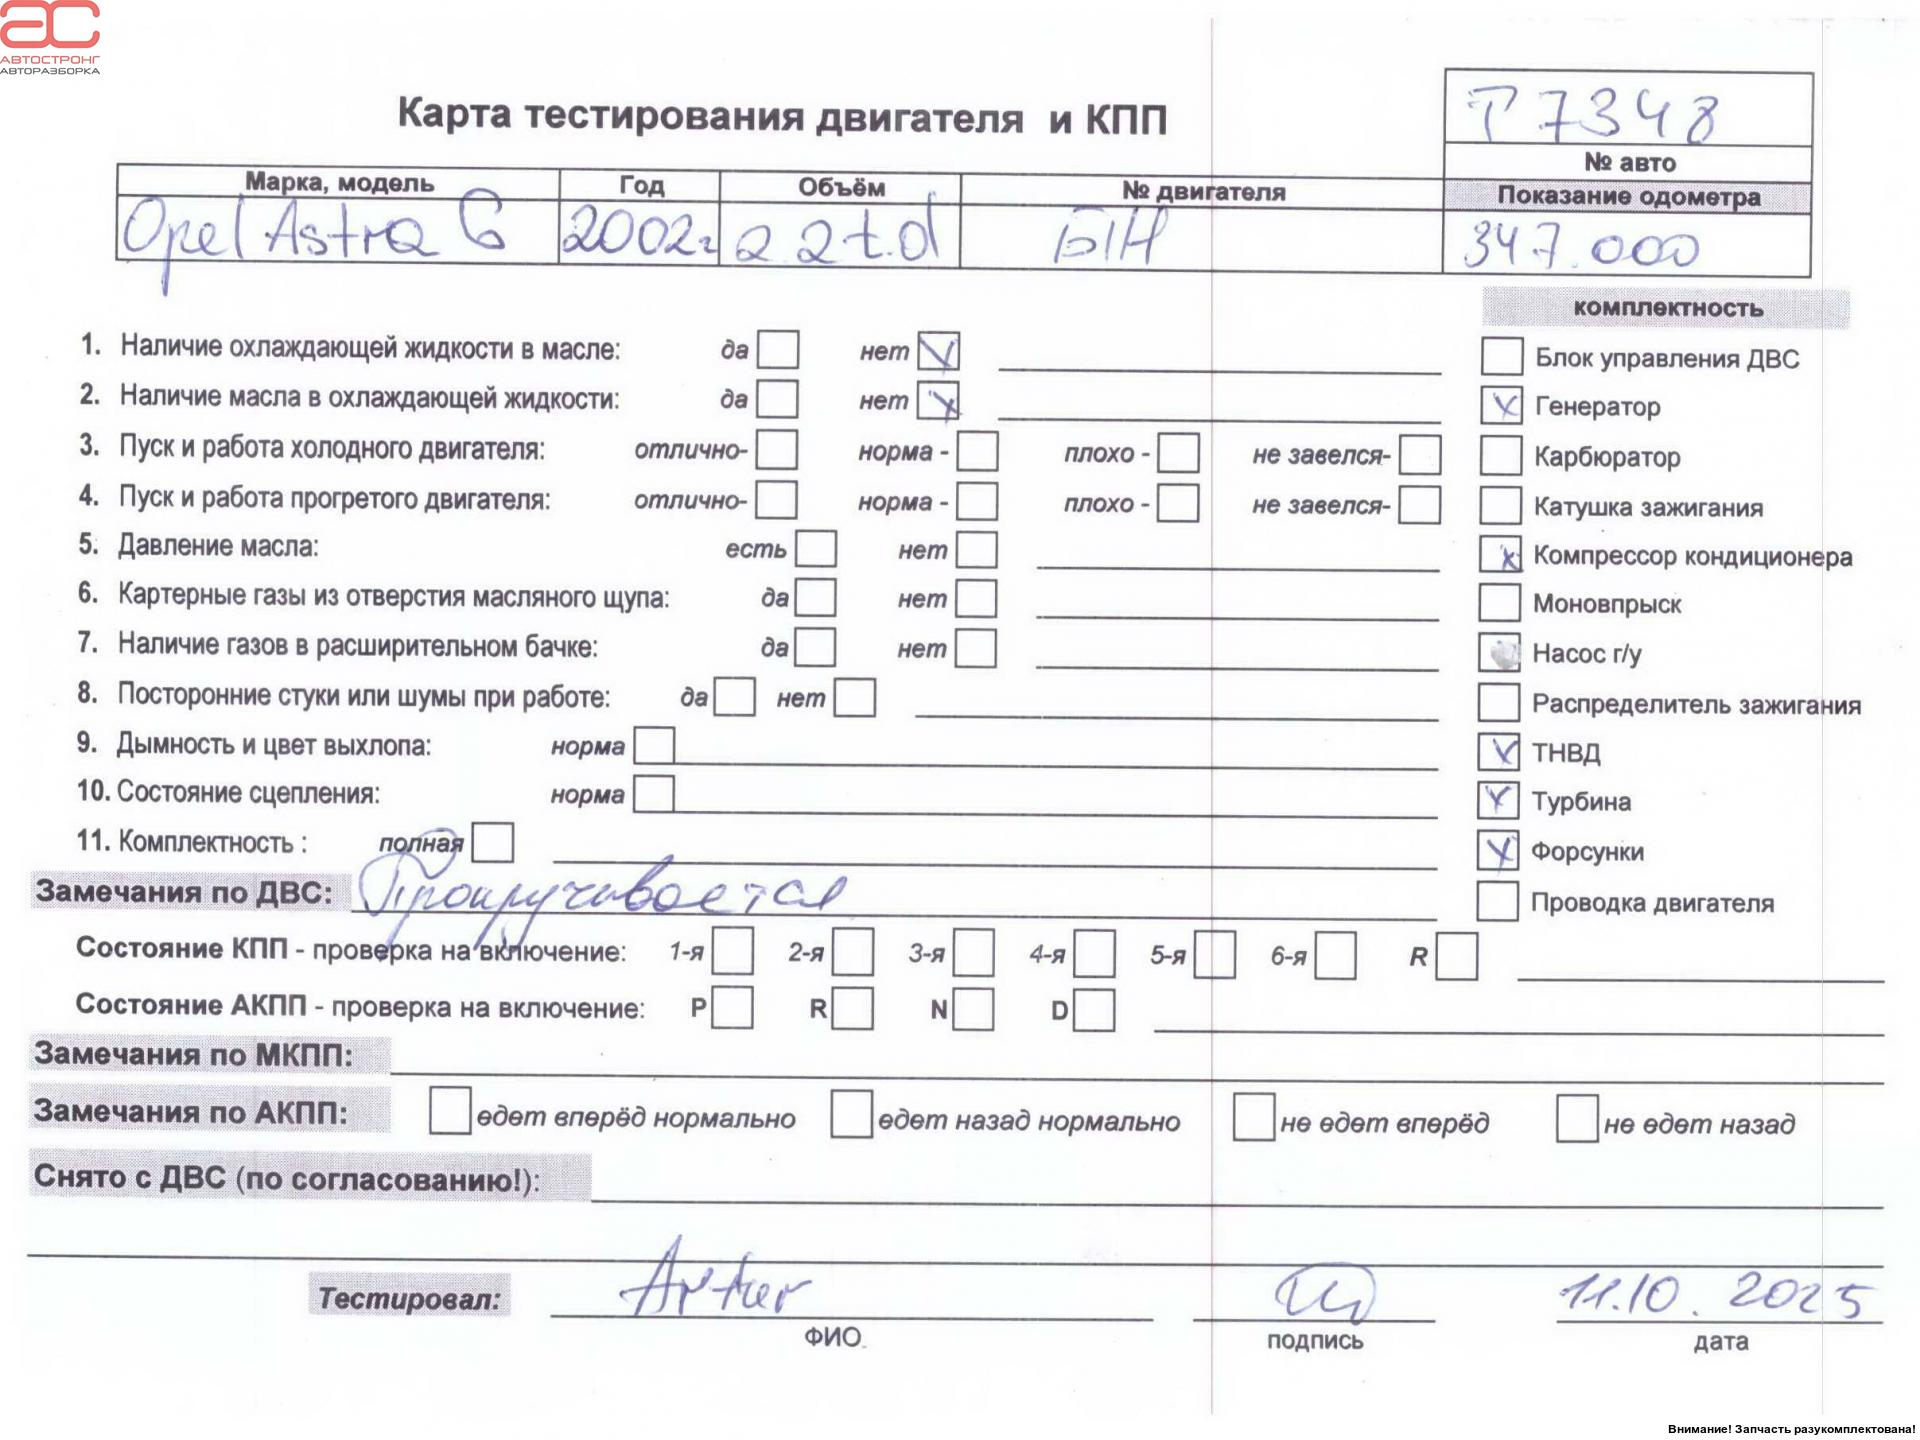 АВТОСТРОНГ
АВТОРАЗБОРКА
Карта тестирования двигателя и КПП
Т 7348
№ авто
Марка, модель Год Объём № двигателя Показание одометра
Opel Astra G 2002г 2.2 t.d Б/Н 347.000
комплектность
1. Наличие охлаждающей жидкости в масле: да нет
Блок управления ДВС
2. Наличие масла в охлаждающей жидкости: да нет
Генератор
3. Пуск и работа холодного двигателя: отлично- норма - плохо - не завелся-
Карбюратор
4. Пуск и работа прогретого двигателя: отлично- норма - плохо - не завелся-
Катушка зажигания
5. Давление масла: есть нет
Компрессор кондиционера
6. Картерные газы из отверстия масляного щупа: да нет
Моновпрыск
7. Наличие газов в расширительном бачке: да нет
Насос г/у
8. Посторонние стуки или шумы при работе: да нет
Распределитель зажигания
9. Дымность и цвет выхлопа: норма
ТНВД
10. Состояние сцепления: норма
Турбина
11. Комплектность : полная
Форсунки
Замечания по ДВС: Прокручивается
Проводка двигателя
Состояние КПП - проверка на включение: 1-я 2-я 3-я 4-я 5-я 6-я R
Состояние АКПП - проверка на включение: P R N D
Замечания по МКПП:
Замечания по АКПП: едет вперёд нормально едет назад нормально не едет вперёд не едет назад
Снято с ДВС (по согласованию!):
Тестировал: Artur 11.10.2025
ФИО. подпись дата
Внимание! Запчасть разукомплектована!